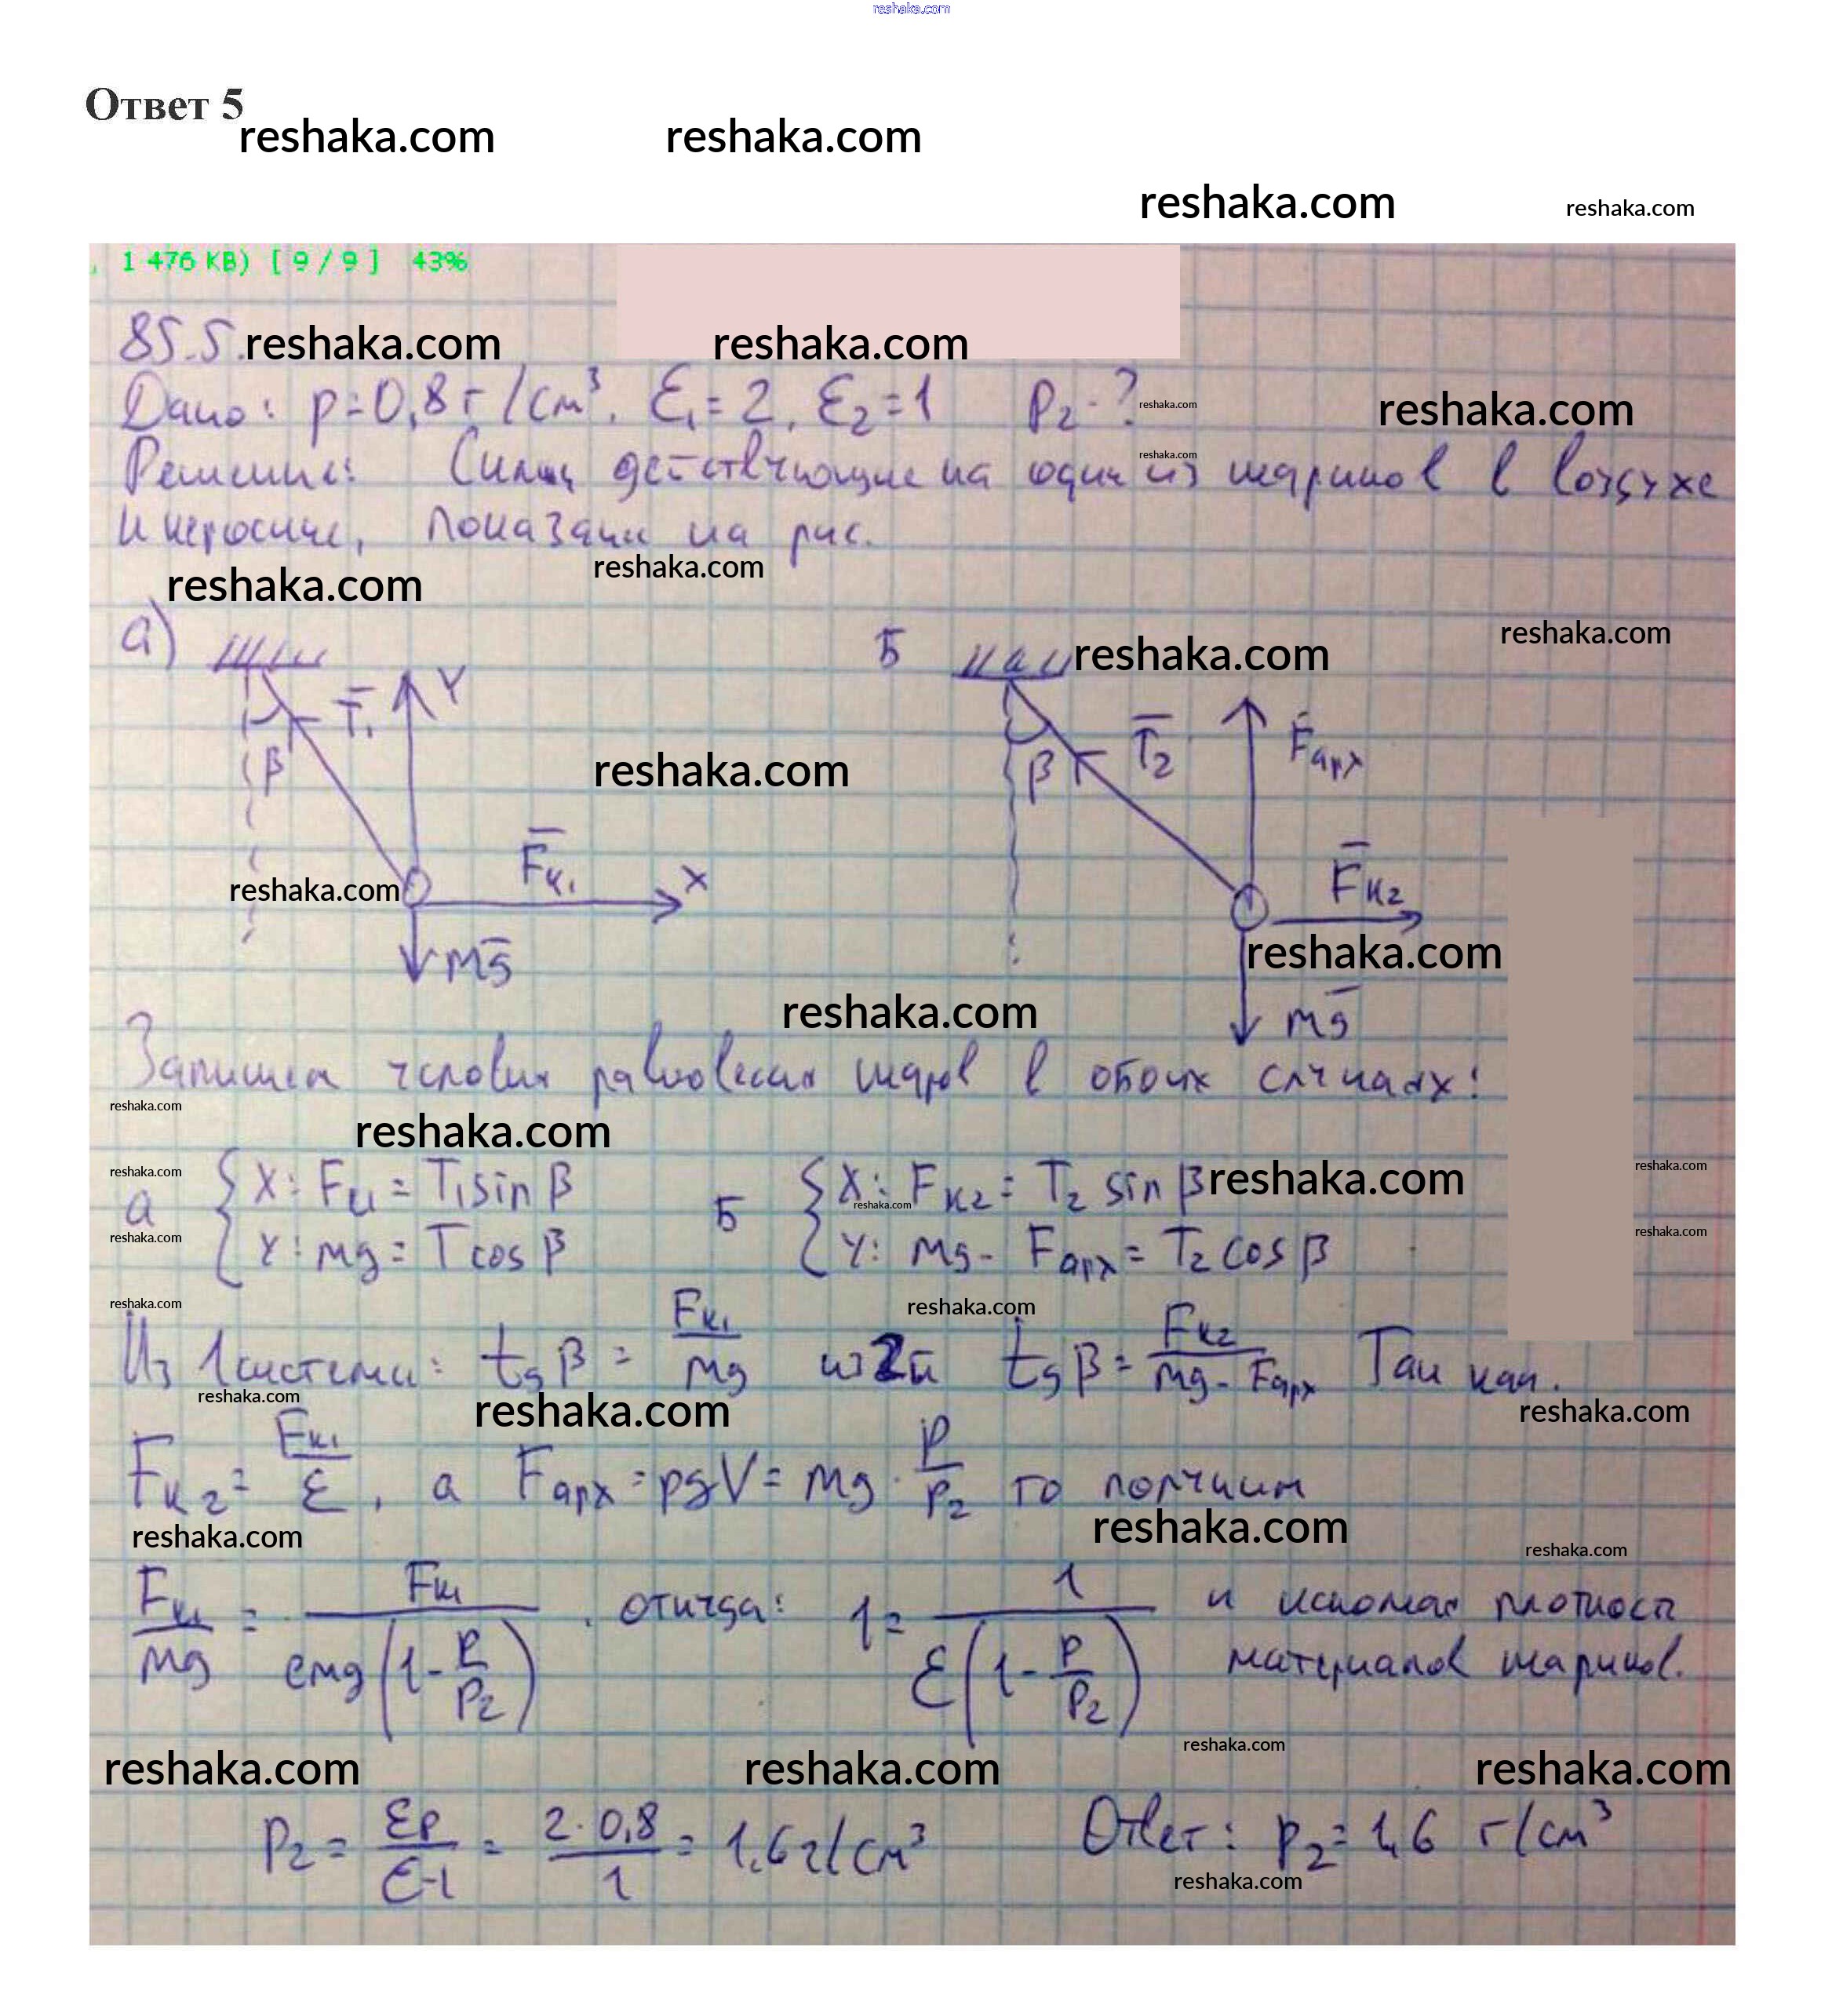 reshaka.com
Ответ 5
reshaka.com reshaka.com
reshaka.com reshaka.com
, 1 476 KB) [ 9 / 9 ] 43%
85.5. reshaka.com reshaka.com
Дано: ρ=0,8 г/см³, ε₁=2, ε₂=1 ρ₂-? reshaka.com reshaka.com
reshaka.com
Решение: Силы, действующие на один из шариков в воздухе
и керосине, показаны на рис.
reshaka.com reshaka.com
а) Б reshaka.com reshaka.com
T̅₁ Y T̅₂ Fарх
β β
reshaka.com
F̅к₁ X F̅к₂
reshaka.com
mg̅ reshaka.com
reshaka.com mg̅
Запишем условия равновесия шаров в обоих случаях:
reshaka.com
reshaka.com
reshaka.com reshaka.com reshaka.com
а { X: Fк₁ = T₁sin β Б { X: Fк₂ = T₂ sin β
reshaka.com
Y: mg = T cos β Y: mg - Fарх = T₂ cos β
reshaka.com reshaka.com
reshaka.com reshaka.com
Из 1 системы: tg β = Fк₁/mg из 2й tg β = Fк₂/(mg - Fарх) Так как.
reshaka.com reshaka.com reshaka.com
Fк₂ = Fк₁/ε, а Fарх = ρgV = mg · ρ/ρ₂ то получим
reshaka.com reshaka.com reshaka.com
Fк₁/mg = Fк₁/(εmg(1 - ρ/ρ₂)). откуда: 1 = 1/(ε(1 - ρ/ρ₂)) и искомая плотность
материалов шариков.
reshaka.com reshaka.com reshaka.com reshaka.com
ρ₂ = ερ/(ε-1) = 2·0,8/1 = 1,6 г/см³ Ответ: ρ₂ = 1,6 г/см³
reshaka.com